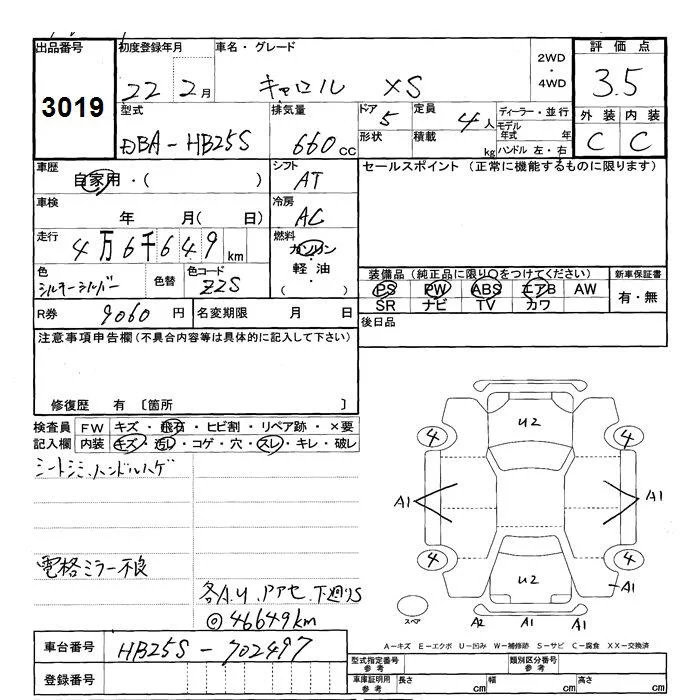 出品番号
3019
初度登録年月
22 2月
車名・グレード
キャロル XS
2WD
・
4WD
評価点
3.5
外装 内装
C C
型式
DBA-HB25S
排気量
660cc
ドア 5
形状
定員 4人
積載 kg
ディーラー・並行
モデル年式 年
ハンドル 左・右
車歴
自家用・( )
シフト
AT
セールスポイント (正常に機能するものに限ります)
車検
年 月( 日)
冷房
AC
走行
4万6千649km
燃料
ガソリン
・
軽油
・
( )
色
シルキーシルバー
色替
色コード
ZZS
装備品(純正品に限り○をつけてください)
PS PW ABS エアB AW
SR ナビ TV カワ
新車保証書
有・無
R券 9060円
名変期限 月 日
後日品
注意事項申告欄(不具合内容等は具体的に記入して下さい)
修復歴 有 〔箇所 〕
検査員 FW キズ・飛石・ヒビ割・リペア跡・×要
記入欄 内装 キズ・汚レ・コゲ・穴・スレ・キレ・破レ
シートシミ、ハンドルハゲ
電格ミラー不良
各A.U.アアセ.下廻りS
◎46649km
U2
4 4
A1 A1
4 4
U2
A1
スペア
A2 A1 A1
A-キズ E-エクボ U-凹み W-補修跡 S-サビ C-腐食 XX-交換済
車台番号 HB25S-702497
登録番号
型式指定番号 参考
類別区分番号 参考
車庫証明用 参考
長さ cm 幅 cm 高さ cm